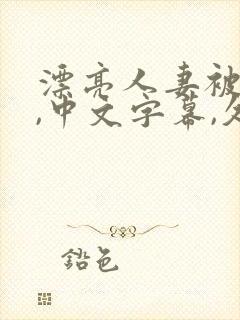 漂亮人妻被
,中文字幕,久
鉛色